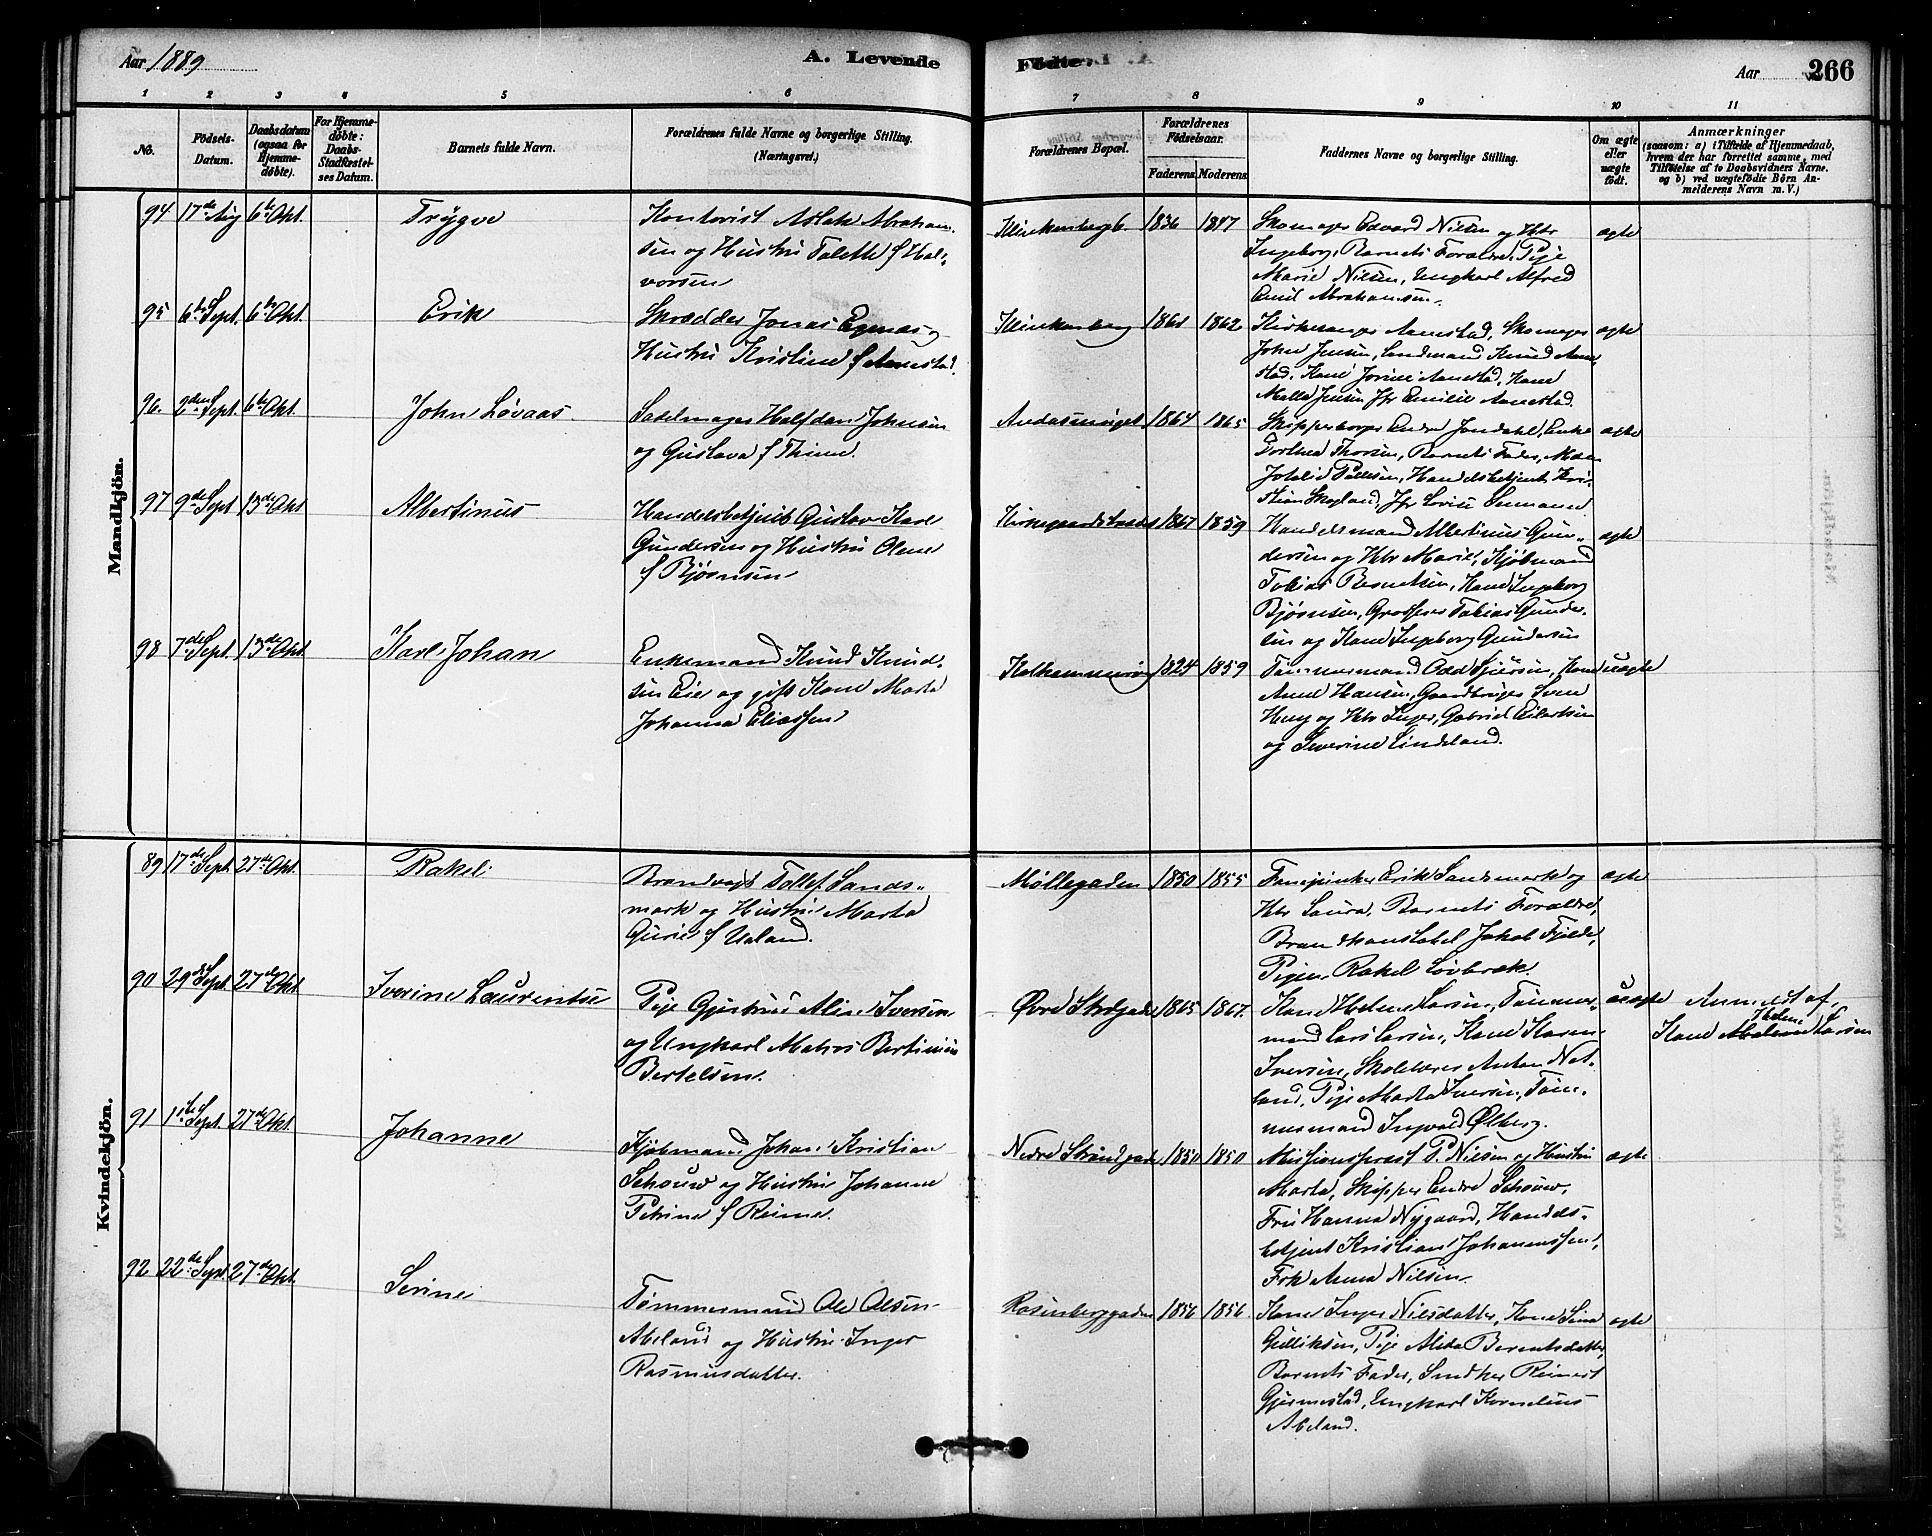 Aar 1889
A. Levende
Födte.
Aar
266
1
2
3
4
5
6
7
8
9
10
11
No.
Födsels-
Datum.
Daabsdatum
(ogsaa for
Hjemme-
døbte).
For Hjemme-
døbte:
Daabs-
Stadfæstel-
ses Datum.
Barnets fulde Navn.
Forældrenes fulde Navne og borgerlige Stilling.
(Næringsvei.)
Forældrenes Bopæl.
Forældrenes
Födselsaar.
Faderens.
Moderens.
Faddernes Navne og borgerlige Stilling.
Om ægte
eller
uægte
født.
Anmærkninger
(saasom: a) i Tilfælde af Hjemmedaab,
hvem der har forrettet samme, med
Tilföielse af to Daabsvidners Navne.
og b) ved uægtefödte Börn An-
melderens Navn m. V.)
Mandkjön.
94 17de Aug 6te Okt.
Trygve
Kontorist Aslak Abraham-
sen og Hustru Talette f Hal-
vorsen
Klinkenberg 6. 1836 1847
Skomager Edvard Nilsen og Hstr
Ingeborg, Barnets Forældre, Pige
Marie Nilsen, Ungkarl Alfred
Emil Abrahamsen.
ægte
95 6te Sept. 6te Okt.
Erik
Skrædder Jonas Egenæs og
Hustru Kristine f Aanestad.
Klinkenberg 1861 1862
Kirkesanger Aanestad, Skomager
John Jensen, Landmand Knud Aane-
stad, Kone Jorine Aanestad, Kone
Malla Jensen Jfr Emilie Aanestad.
ægte
96. 2den Sept. 6te Okt.
John Løvaas
Sadelmager Halfdan Johnsen
og Gustava f Thime.
Andasmauget 1864 1865
Skipperborger Endre Jondahl, Enke
Dorthea Thorsen, Barnets Fader, Mad
Jotalie Pedersen, Handelsbetjent Kri-
stian Skogland, Jfr Lovise
ægte
97 9de Sept 13de Okt
Albertinus
Handelsbetjent Gustav Karl
Gundersen og Hustru Olene
f Bjørnsen
Kirkegaardstræde 1867 1859
Handelsmand Albertinus Gun-
dersen og Hstr Marie, Kjøbmand
Tobias Berentsen, Kone Ingeborg
Bjørnsen, Grosserer Tobias Gunder-
sen og Kone Ingeborg Gundersen
ægte
98 7de Sept. 13de Okt
Karl Johan
Enkemand Knud Knud-
sen Eie og gift Kone Marta
Johanna Eliassen
Kalhammeren 1824 1859
Tømmermand Odd Sjursen, Kone
Anne Hansen, Gaardbruger Sven
Haug og Hstr Inger, Gabriel Eilertsen
og Severine Lindeland.
uægte
Kvindekjön.
89 17de Sept 27de Okt.
Rakel
Brandvagt Tollef Sands-
mark og Hustru Marta
Gurie f Ualand.
Møllegaden 1850 1855
Erik Sandsmark og
Hstr Laura, Barnets Forældre,
Brandkonstabel Jakob Fjelde,
Pigen Rakel Løvbræk.
ægte
90 29de Sept. 27de Okt
Iverine Laurentse
Pige Gjertrud Aline Iversen
og Ungkarl Matros Bertinius
Bertelsen.
Øvre Strdgade 1865 1867.
Kone Helene Larsen, Tømmer-
mand Lars Larsen, Kone Karen
Iversen, Skolelærer Anton Nat-
land, Pige Marta Iversen, Tøm-
mermand Ingvald Ølberg.
uægte
Anmeldt af
Kone Helene Larsen
91 1ste Sept. 27de Okt.
Johanne
Kjøbmand Johan Kristian
Schouw og Hustru Johanne
Petrine f Reime.
Nedre Strandgade 1850 1850
Missionsprest P. Nilsen og Hustru
Marta, Skipper Endre Schouw,
Fru Hanna Nygaard, Handels-
betjent Kristian Johannessen,
Frk Anna Nilsen.
ægte
92 22de Sept. 27de Okt.
Serine
Tømmermand Ole Olsen
Abeland og Hustru Inger
Rasmusdatter.
Rosenberggaden 1856 1856.
Kone Inger Nilsdatter, Kone Sina
Gulliksen, Pige Alida Berentsdatter,
Barnets Fader, Snedker Reinert
Gjermestad, Ungkarl Kornelius
Abeland.
ægte